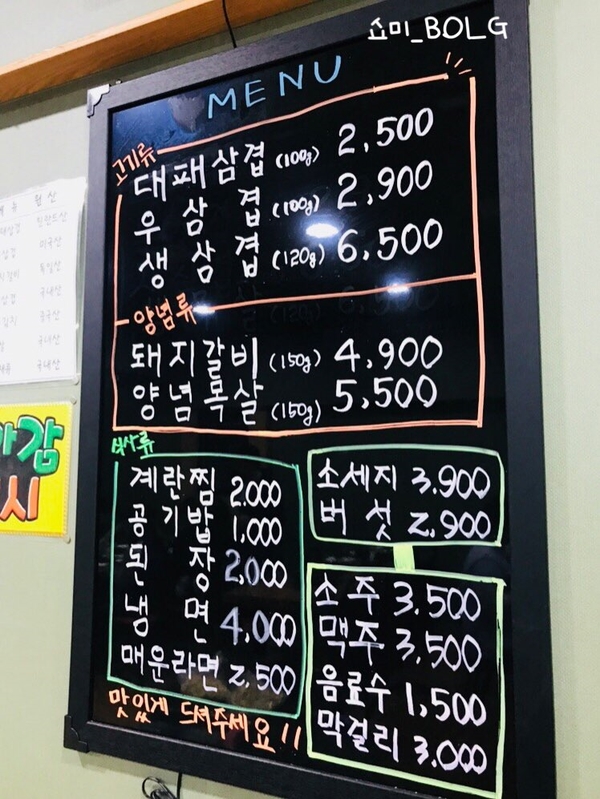 쇼미_BOLG
MENU
고기류
대패삼겹 (100g) 2,500
우삼겹 (100g) 2,900
생삼겹 (120g) 6,500
양념류
돼지갈비 (150g) 4,900
양념목살 (150g) 5,500
식사류
계란찜 2.000
공기밥 1,000
된장 2,000
냉면 4,000
매운라면 2,500
맛있게 드셔주세요!!
소세지 3.900
버섯 2,900
소주 3.500
맥주 3,500
음료수 1,500
막걸리 3.000
미국산
독일산
국내산
중국산
국내산
국내산
감
시